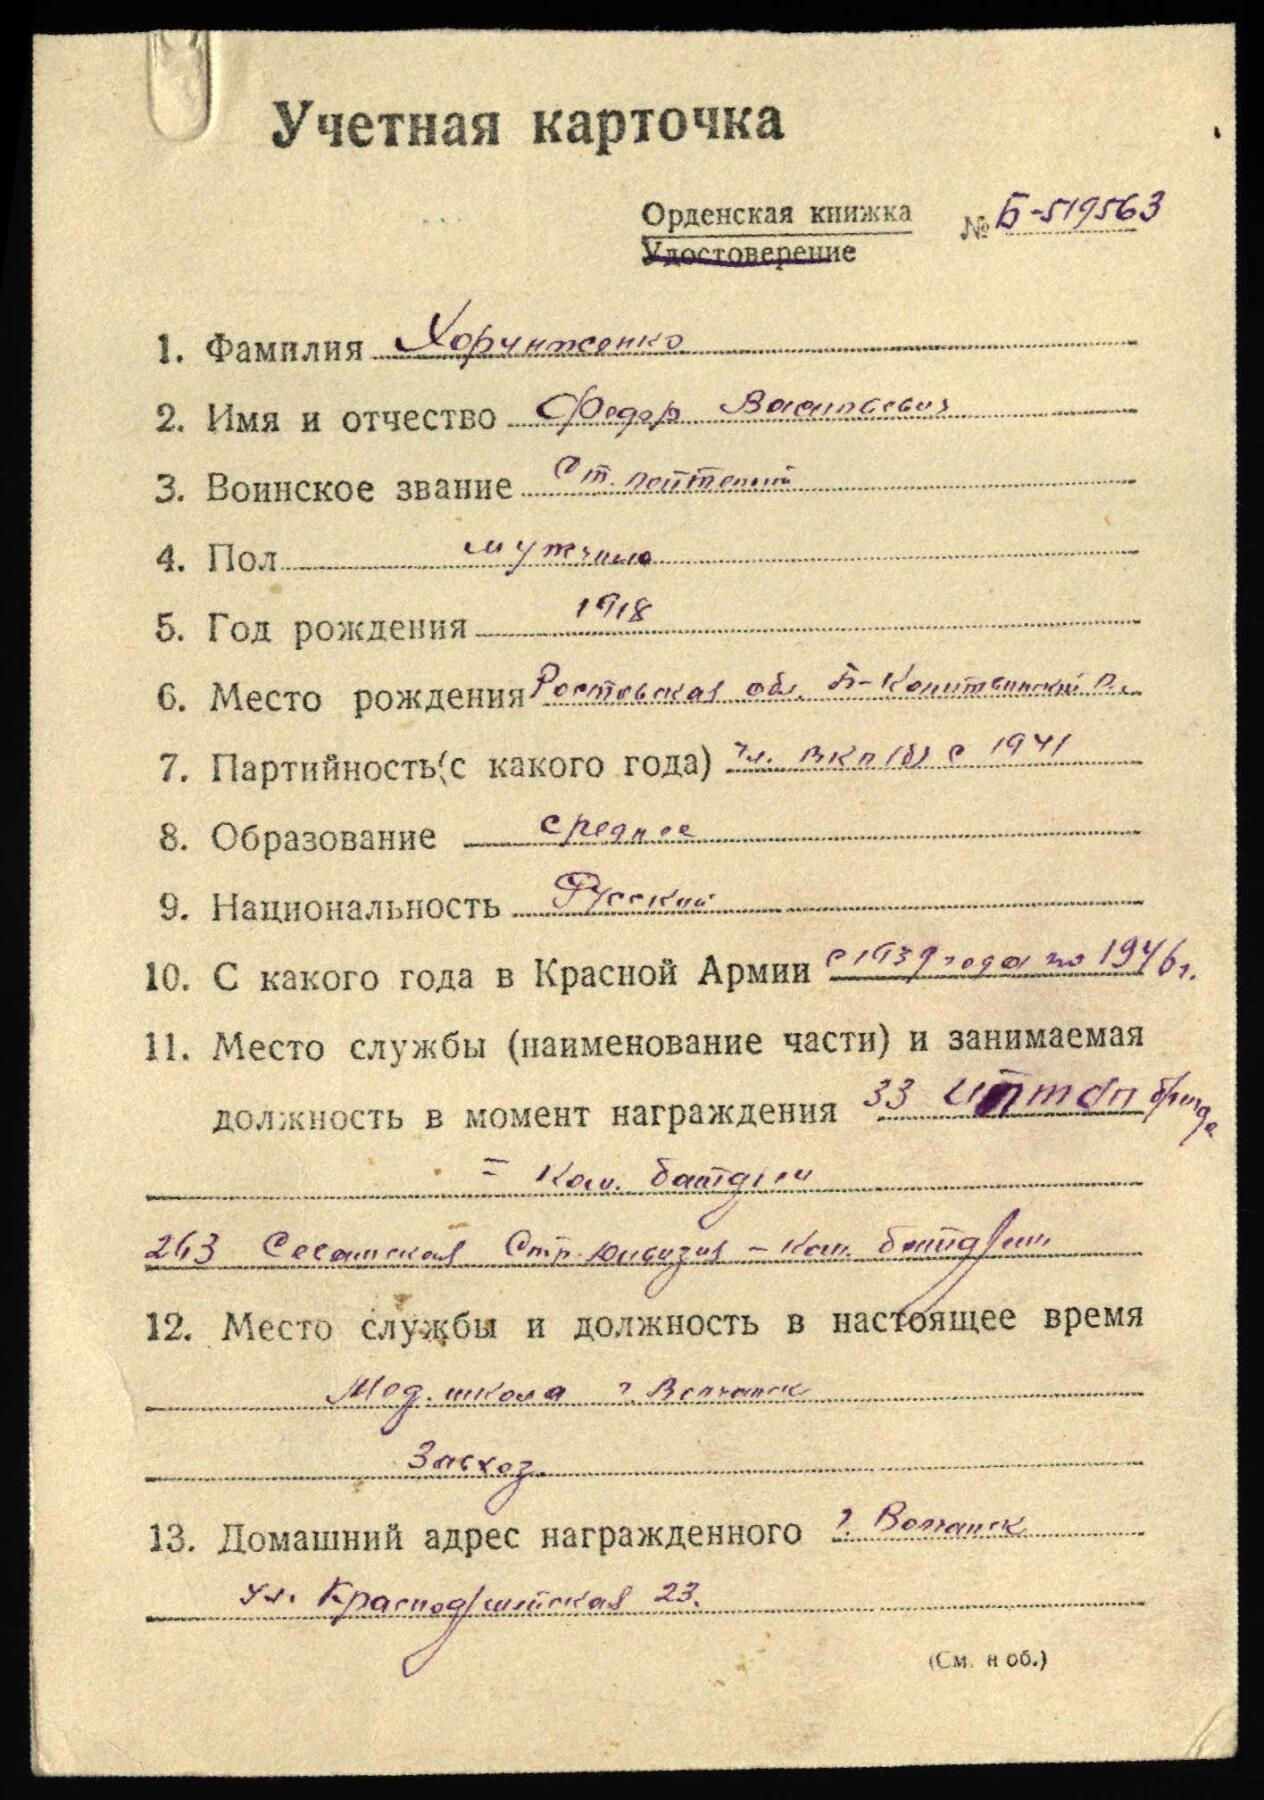 Учетная карточка
Орденская книжка
Удостоверение
№ Б-519563
1. Фамилия Хорунженко
2. Имя и отчество Федор Васильевич
3. Воинское звание Ст. лейтенант
4. Пол мужчина
5. Год рождения 1918
6. Место рождения Ростовская обл. Б-Калитвинский р.
7. Партийность (с какого года) чл. ВКП(б) с 1941
8. Образование среднее
9. Национальность Русский
10. С какого года в Красной Армии с 1939 года по 1946 г.
11. Место службы (наименование части) и занимаемая
должность в момент награждения 33 бригада
= Ком. батареи
263 Стр. дивизия – Ком. батареи
12. Место службы и должность в настоящее время
Мед. школа г. Волчанск
Завхоз
13. Домашний адрес награжденного г. Волчанск
ул. Красноармейская 23.
(См. н об.)